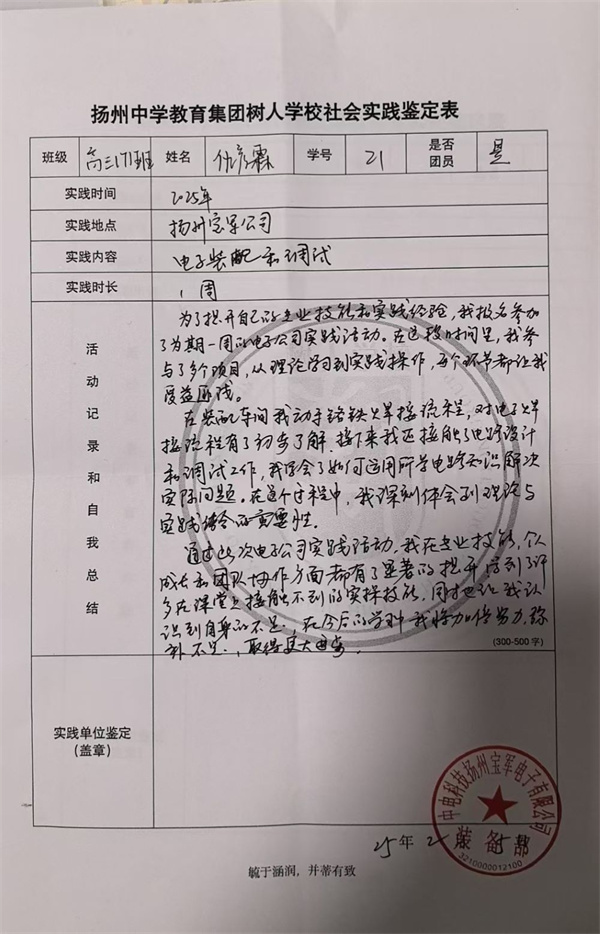 扬州中学教育集团树人学校社会实践鉴定表
班级 高三(7)班 姓名 学号 21 是否团员 是
实践时间 2025年
实践地点 扬州宝军公司
实践内容 电子装配和调试
实践时长 1周
活动记录和自我总结
为了提升自己的专业技能和实践经验，我报名参加
了为期一周的电子公司实践活动。在这段时间里，我参
与了多个项目，从理论学习到实践操作，每个环节都让我
受益匪浅。
在装配车间我动手铬铁火焊接流程，对电子焊
接流程有了初步了解，接下来我还接触了电路设计
和调试工作，我学会了如何运用所学电路知识解决
实际问题。在这个过程中，我深刻体会到理论与
实践结合的重要性。
通过此次电子公司实践活动，我在专业技能，个人
成长和团队协作方面都有了显著的提升 学到了许
多在课堂上接触不到的实操技能，同时也让我认
识到自身的不足，在今后的学习 我将加倍努力，弥
补不足，取得更大进步。
(300-500 字)
实践单位鉴定
(盖章)
中电科技扬州宝军电子有限公司
装备部
3210000012100
25年 2
毓于涵润，并蒂有致